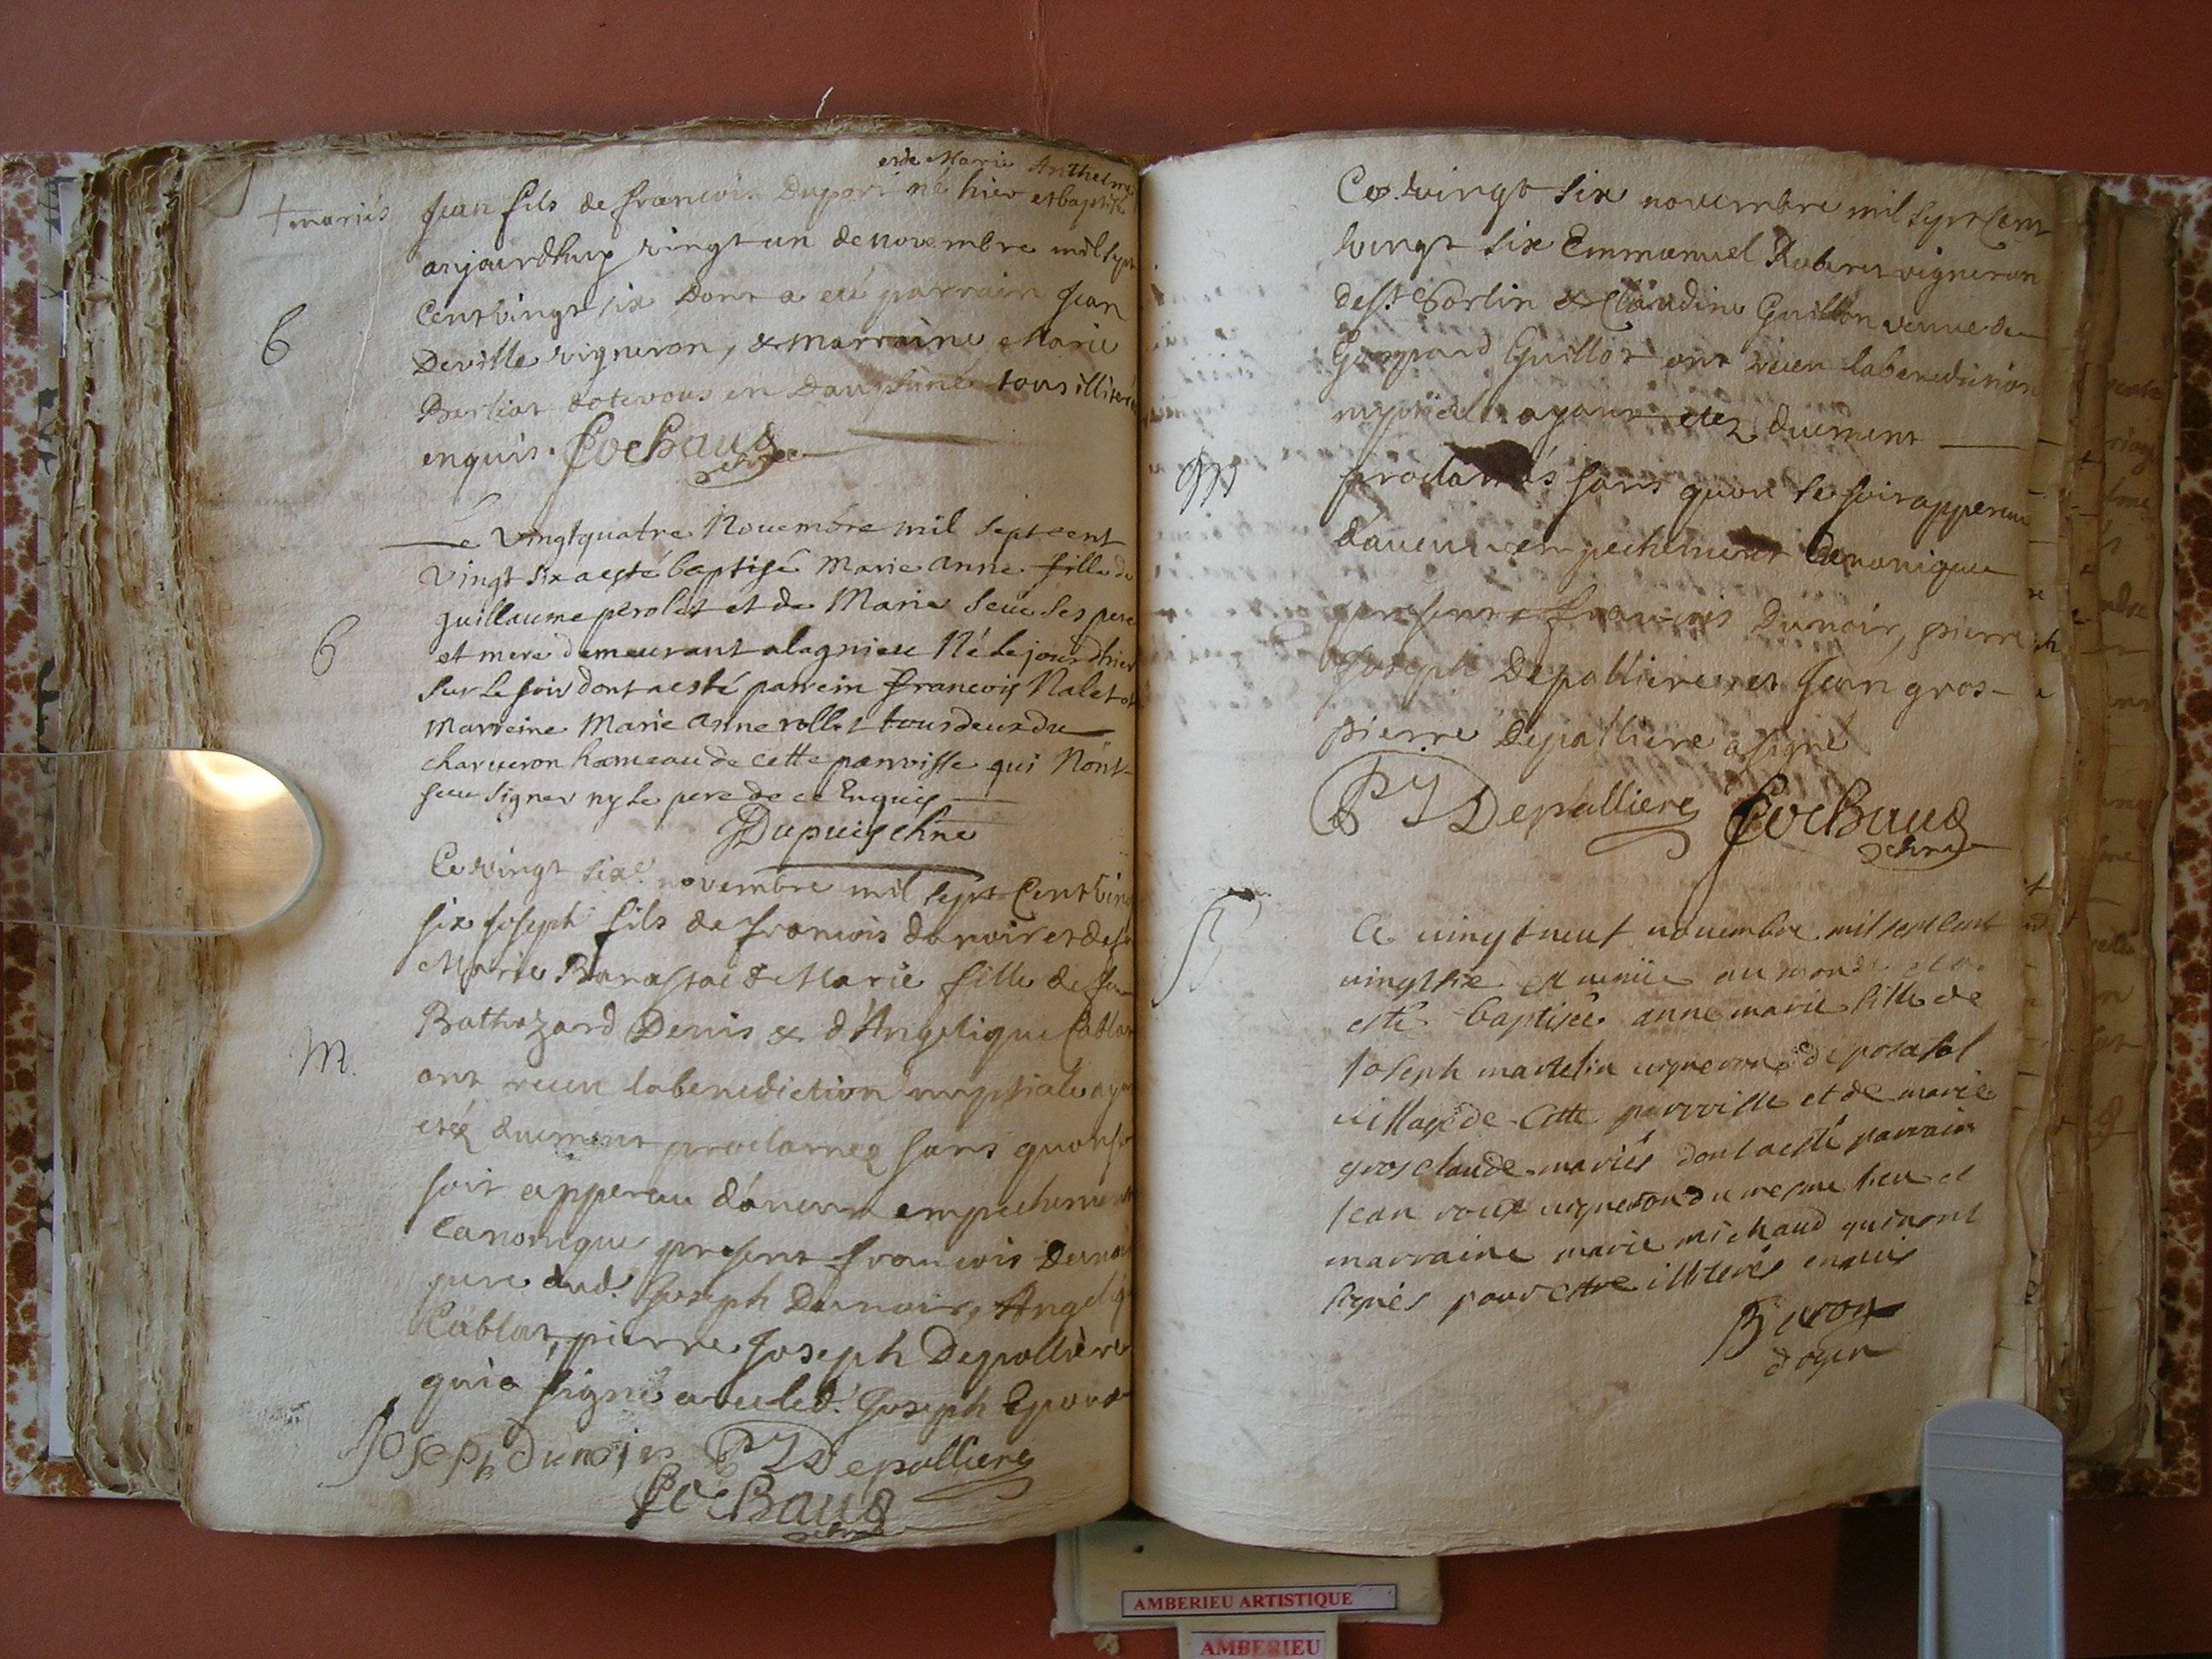 et de Marie Anthelme
+ mariés
Jean fils de francois Duport né hier et baptisé
aujourdhuy vingt un de novembre mil sept
Cent vingt six Dont a eté parrain Jean
B
Deville vigneron, & marraine Marie
Berliat en Dauphiné tous illiterés
enquis. Cochaud
Le vingtquatre Nouembre mil Sept cent
Vingt six a esté baptisé Marie anne fille de
guillaume perolet et de Marie ses pere
B
et mere demeurant a lagnieu Né le jour dhier
Sur Le soir dont a esté parrein francois Nalet et
Marreine Marie anne rollet tous deux du
charueron hameau de cette parroisse qui Nont
sceu Signer ny le pere de ce Enquis
Dupuis chne
Ce vingt six.e novembre mil sept Cent vingt
six Joseph fils de francois dunoir et de
Marie & Marie fille de feu
Bathazard Denis & d'Angelique Cablat
M.
ont receu la benediction nuptiale ayant
etéz duement proclamez sans quon se
soit apperceu d'aucun empechement
Canonique present francois Dunoir
pere dud. Joseph Dunoir, Angelique
Cablat, pierre Joseph Depolliere
qui a signé avec led. Joseph Epoux
Joseph dunoir PJ Depolliere
Cochaud
Ce vingt six novembre mil sept Cent
vingt six Emmanuel Robert vigneron
de st. Sorlin & Claudine Guillon veuve de
Gaspard Guillot ont receu la benediction
nuptiale ayant etez duement
M
proclamés sans quon se soit apperceu
d'aucun empechement Canonique
present francois Dunoir, pierre
Joseph Depolliere et Jean gros
pierre Depolliere a signé
PJ Depolliere Cochaud
chne
B
Ce vingt neuf nouembre mil sept Cent
vingt six est venüe au monde et a
esté baptisée anne marie fille de
Joseph martelin vigneron de posafol
village de Cette parroisse et de marie
gros claude mariés dont a esté parrain
Jean roux vigneron du mesme lieu et
marraine marie michaud qui n'ont
signés pour estre illiterés enquis
doyen
AMBERIEU ARTISTIQUE
AMBERIEU